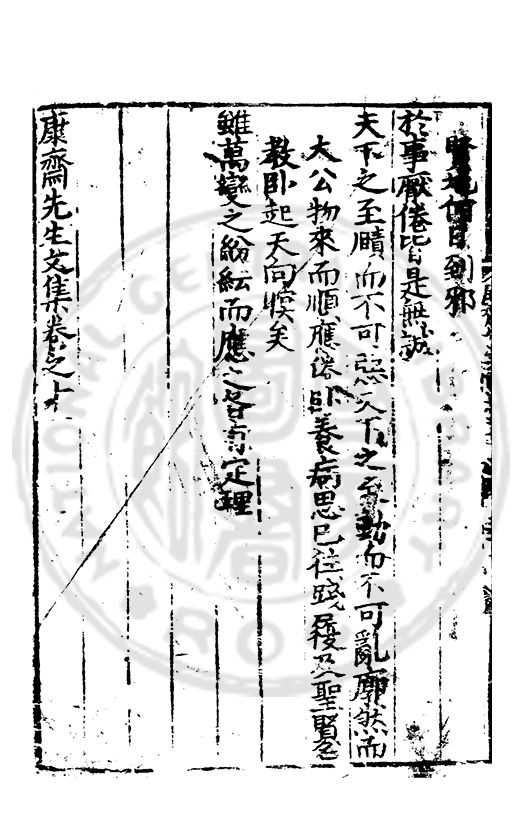 賢境何日到邪
於事厭倦皆是無誠
天下之至賾而不可惡天下之至動而不可亂廓然而
大公物來而順應倦卧養病思已往踐履及聖賢名
教卧起天向暝矣
雖萬變之紛紜而應之各有定理
康齋先生文集卷之十